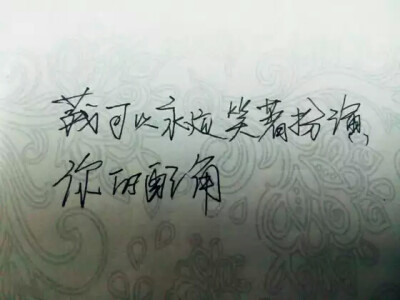 我可以永远笑著扮演
你的配角